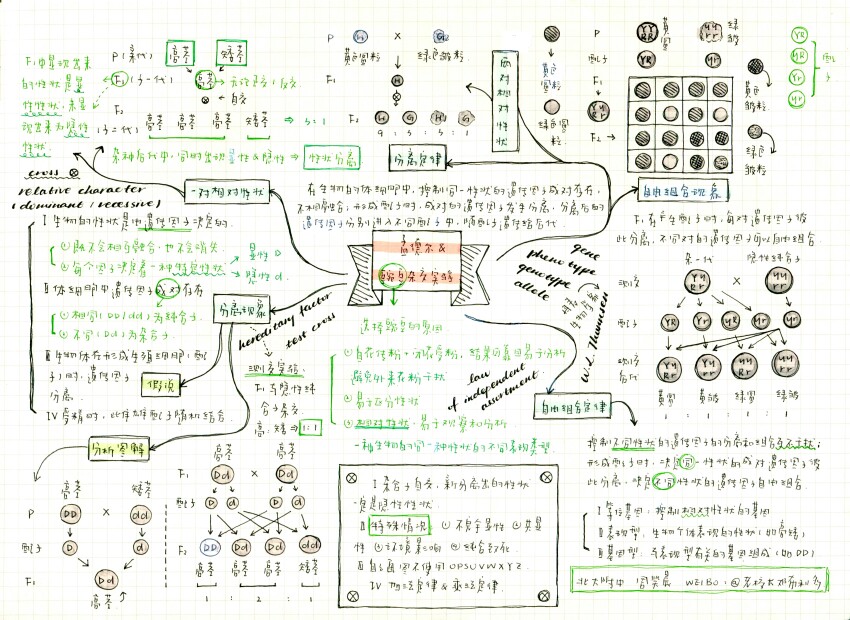 孟德尔 &
豌豆杂交实验
一对相对性状
P(亲代) 高茎 矮茎
F₁(子一代) 高茎 → 无论正交/反交
⊗ 自交
F₂
(子二代) 高茎 高茎 高茎 矮茎 ⇒ 3:1
F₁中显现出来
的性状是显
性性状，未显
现出来为隐性
性状.
杂种后代中，同时出现显性&隐性 ⇒ 性状分离
cross ⊗
relative character
(dominant / recessive)
I 生物的性状是由遗传因子决定的.
① 既不会相互融合，也不会消失.
② 每个因子决定着一种特定性状
显性 D
隐性 d.
II 体细胞中遗传因子成对存在
① 相同(DD/dd)为纯合子.
② 不同(Dd)为杂合子.
III 生物体在形成生殖细胞(配
子)时，遗传因子
分离.
IV 受精时，雌雄配子随机结合
假说
分离现象
hereditary factor
test cross
测交实验:
F₁与隐性纯
合子杂交
高:矮 ⇒ 1:1
分析图解
高茎 矮茎
P DD × dd
配子 D d
F₁ Dd
高茎
高茎 高茎
F₁ Dd × Dd
配子 D d D d
F₂ DD Dd Dd dd
高茎 高茎 高茎 矮茎
1 : 2 : 1
两对相对性状
P ×
黄色圆粒 绿色皱粒
F₁
⊗
F₂
9 : 3 : 3 : 1
分离定律
在生物的体细胞中，控制同一性状的遗传因子成对存在，
不相融合；形成配子时，成对的遗传因子发生分离，分离后的
遗传因子分别进入不同配子中，随配子遗传给后代
黄色圆粒
绿色圆粒
P YYRR 黄圆 yyrr 绿皱
配子 YR yr
F₁ YyRr
F₂
黄色皱粒
绿色皱粒
YR
yR
Yr
yr
配子
自由组合现象
F₁在产生配子时，每对遗传因子彼
此分离，不同对的遗传因子可以自由组合
杂一代 隐性纯合子
测交 YyRr × yyrr
配子 YR Yr yR yr yr
测交后代 YyRr Yyrr yyRr yyrr
黄圆 黄皱 绿圆 绿皱
1 : 1 : 1 : 1
gene
phenotype
genotype
allele
W.L. Johannsen
law
of independent
assortment
自由组合定律
控制不同性状的遗传因子的分离和组合互不干扰；
形成配子时，决定同一性状的成对遗传因子彼
此分离，决定不同性状的遗传因子自由组合.
I 等位基因：控制相对性状的基因
II 表现型：生物个体表现的性状(如高矮)
III 基因型：与表现型有关的基因组成(如DD)
选择豌豆的原因
① 自花传粉，闭花受粉，结果可靠且易于分析
避免外来花粉干扰
② 易于区分性状
③ 相对性状：易于观察和分析
一种生物的同一种性状的不同表现类型.
I 杂合子自交，新分离出的性状
一定是隐性性状.
II 特殊情况: ① 不完全显性 ② 共显
性 ③ 环境影响 ④ 纯合致死
III 自主画图不使用OPSUVWXYZ.
IV 加法定律 & 乘法定律.